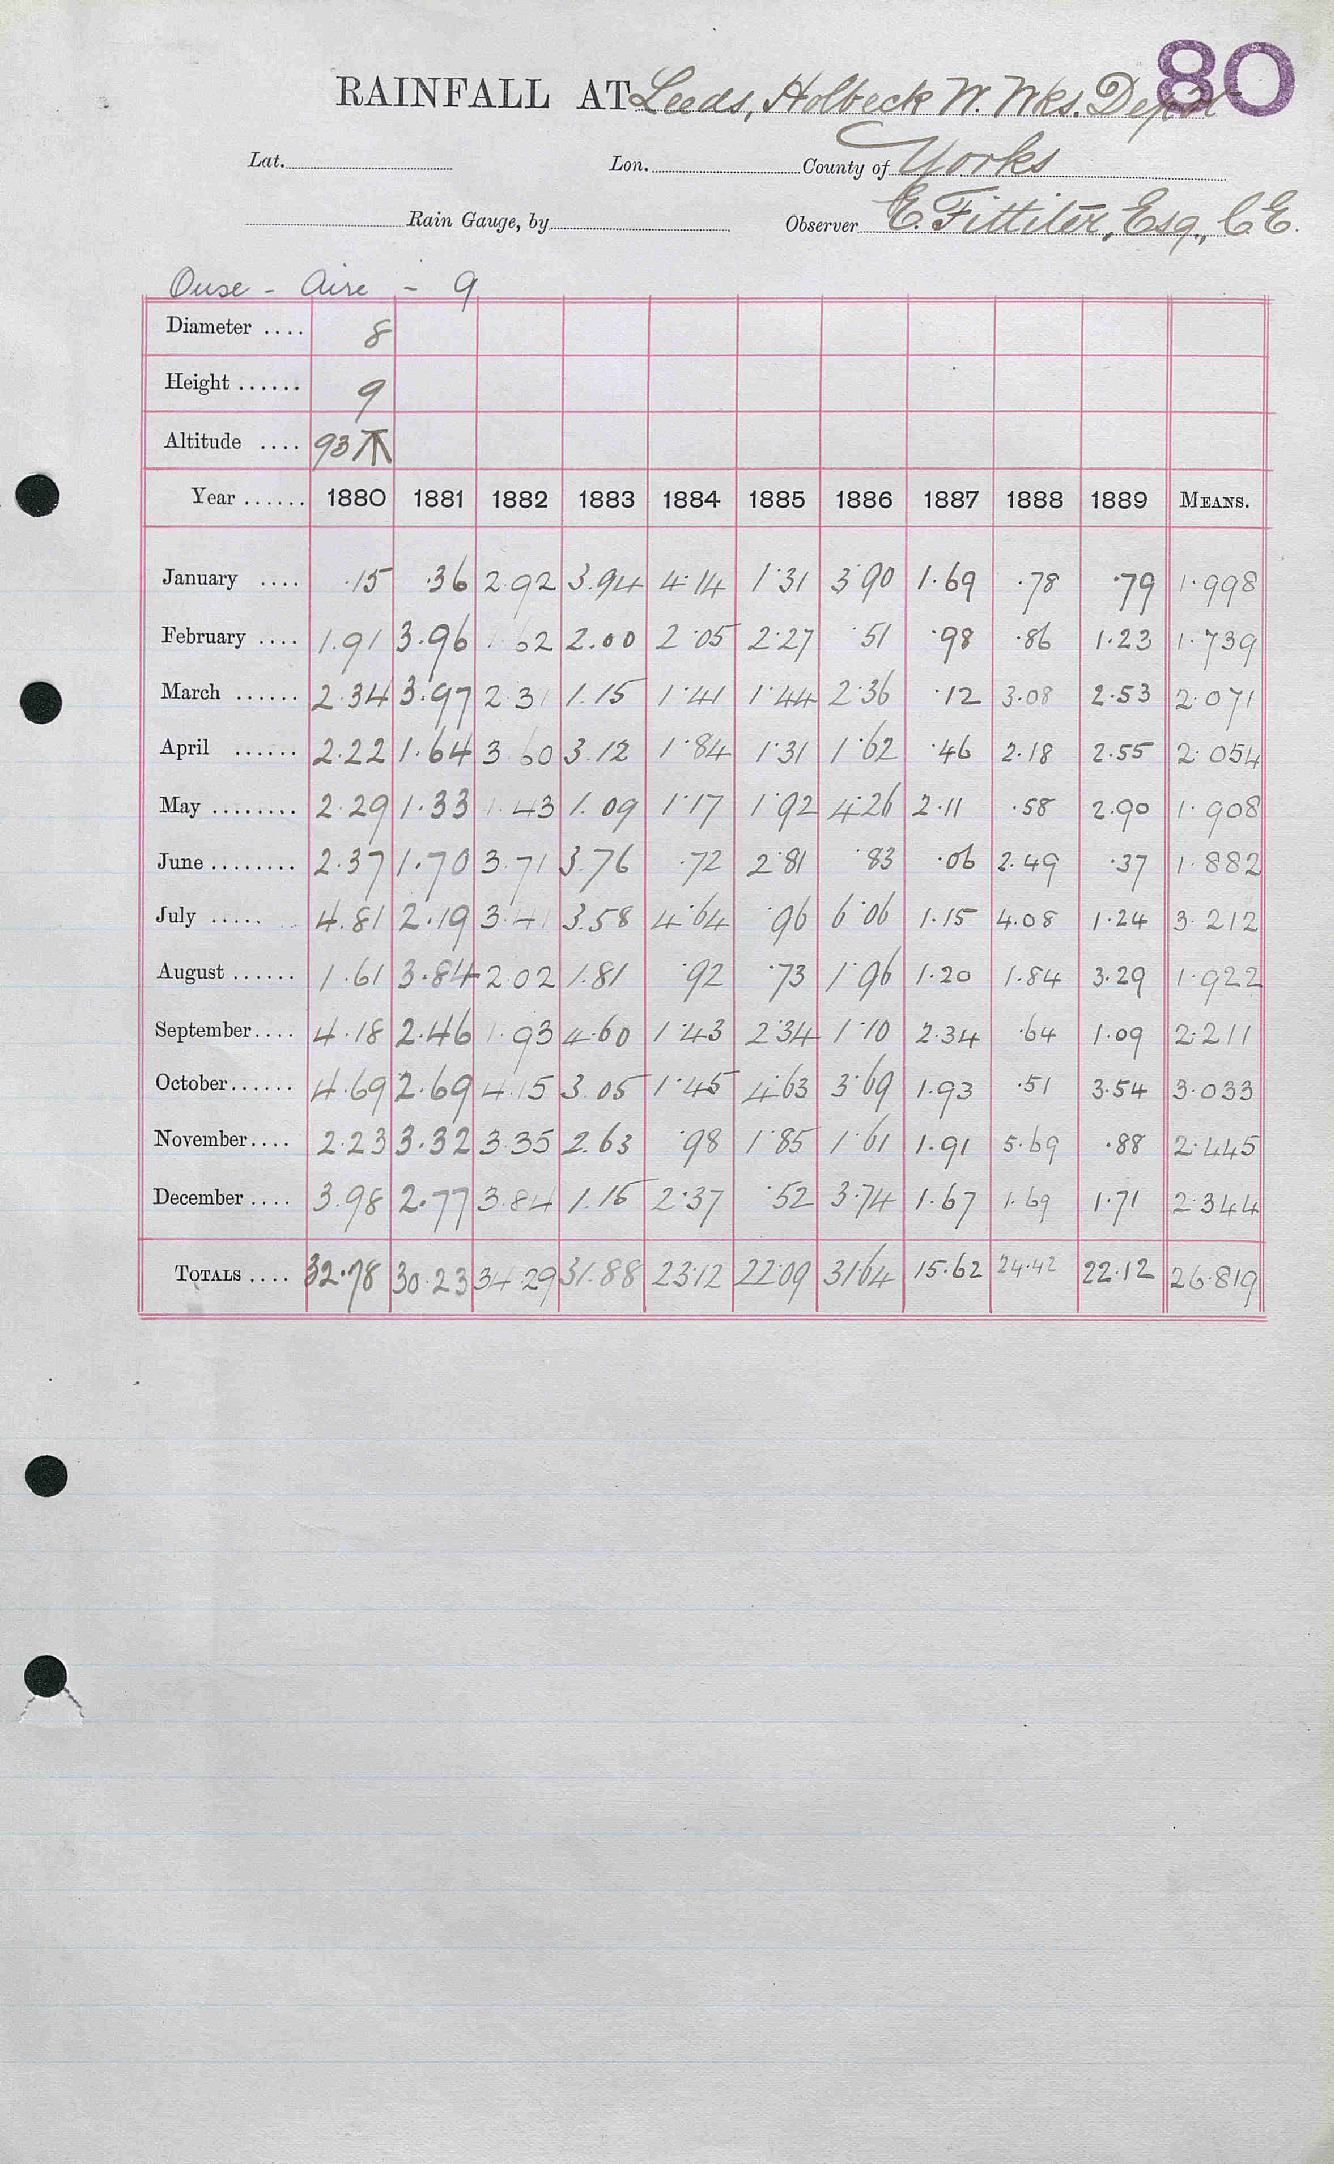 80
RAINFALL AT Leeds, Holbeck W. Wks. Depot
Lat. Lon. County of Yorks
Rain Gauge, by Observer E. Fittiler, Esq., C.E.
Ouse - Aire - 9
Diameter .... 8
Height ...... 9
Altitude .... 93
Year ...... 1880 1881 1882 1883 1884 1885 1886 1887 1888 1889 MEANS.
January .... .15 .36 2.92 3.94 4.14 1.31 3.90 1.69 .78 .79 1.998
February .... 1.91 3.96 1.62 2.00 2.05 2.27 .51 .98 .86 1.23 1.739
March ...... 2.34 3.97 2.31 1.15 1.41 1.44 2.36 .12 3.08 2.53 2.071
April ...... 2.22 1.64 3.60 3.12 1.84 1.31 1.62 .46 2.18 2.55 2.054
May ........ 2.29 1.33 1.43 1.09 1.17 1.92 4.26 2.11 .58 2.90 1.908
June ........ 2.37 1.70 3.71 3.76 .72 2.81 .83 .06 2.49 .37 1.882
July ..... 4.81 2.19 3.41 3.58 4.64 .96 6.06 1.15 4.08 1.24 3.212
August ...... 1.61 3.84 2.02 1.81 .92 .73 1.96 1.20 1.84 3.29 1.922
September .... 4.18 2.46 1.93 4.60 1.43 2.34 1.10 2.34 .64 1.09 2.211
October ...... 4.69 2.69 4.15 3.05 1.45 4.63 3.69 1.93 .51 3.54 3.033
November .... 2.23 3.32 3.35 2.63 .98 1.85 1.61 1.91 5.69 .88 2.445
December .... 3.98 2.77 3.84 1.15 2.37 .52 3.74 1.67 1.69 1.71 2.344
TOTALS .... 32.78 30.23 34.29 31.88 23.12 22.09 31.64 15.62 24.42 22.12 26.819